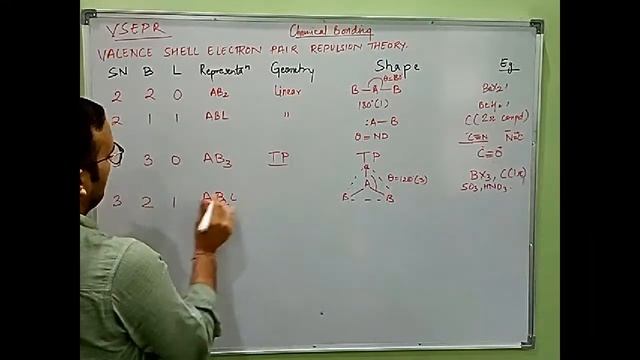 VSEPR
Chemical Bonding
VALENCE SHELL ELECTRON PAIR REPULSION THEORY.
SN B L Representatⁿ Geometry Shape Eg
2 2 0 AB₂ Linear B-A-B 180°(1) BeX₂,
2 1 1 ABL " :A-B C(2π
θ = ND
C≡N N=C
C≡O
3 0 AB₃ TP TP BX₃, C(1π)
A θ=120°(3) SO₃, HNO₃.
3 2 1 AB₂L B B